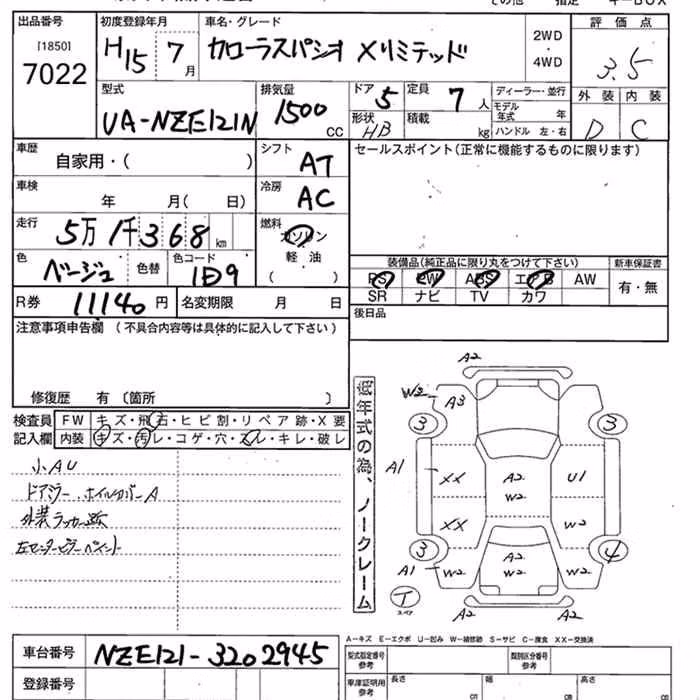 その他 指定 キーBOX
出品番号 初度登録年月 車名・グレード 評価点
[1850] 7022 H15 7月 カローラスパシオ Xリミテッド 2WD・4WD 3.5
外装 内装
D C
型式 UA-NZE121N 排気量 1500 CC ドア 5 定員 7人 ディーラー・並行
形状 HB 積載 kg モデル年式 年
ハンドル 左・右
車歴 自家用・( ) シフト AT セールスポイント(正常に機能するものに限ります)
車検 年 月( 日) 冷房 AC
走行 5万1千368km 燃料 ガソリン 軽油 ( )
色 ベージュ 色替 色コード 1D9
装備品(純正品に限り丸をつけて下さい) 新車保証書
PS PW ABS エアB AW 有・無
SR ナビ TV カワ
R券 11140円 名変期限 月 日 後日品
注意事項申告欄 (不具合内容等は具体的に記入して下さい)
修復歴 有 〔箇所 〕
検査員 FW キズ・飛石・ヒビ割・リペア跡・X要
記入欄 内装 キズ・汚レ・コゲ・穴・スレ・キレ・破レ
小AU
ドアミラー、ホイルカバーA
外装ラッカー跡
左センターピラーペイント
低年式の為、ノークレーム
A2
W2 A3
3 3
A1 XX A2 W2 U1
XX W2
3 A2 4
A1 W2 W2 W2
T A2 A2
A-キズ E-エクボ U-凹み W-補修跡 S-サビ C-腐食 XX-交換済
車台番号 NZE121-3202945
型式指定番号 参考 類別区分番号 参考
登録番号 車庫証明用 参考 長さ cm 幅 cm 高さ cm